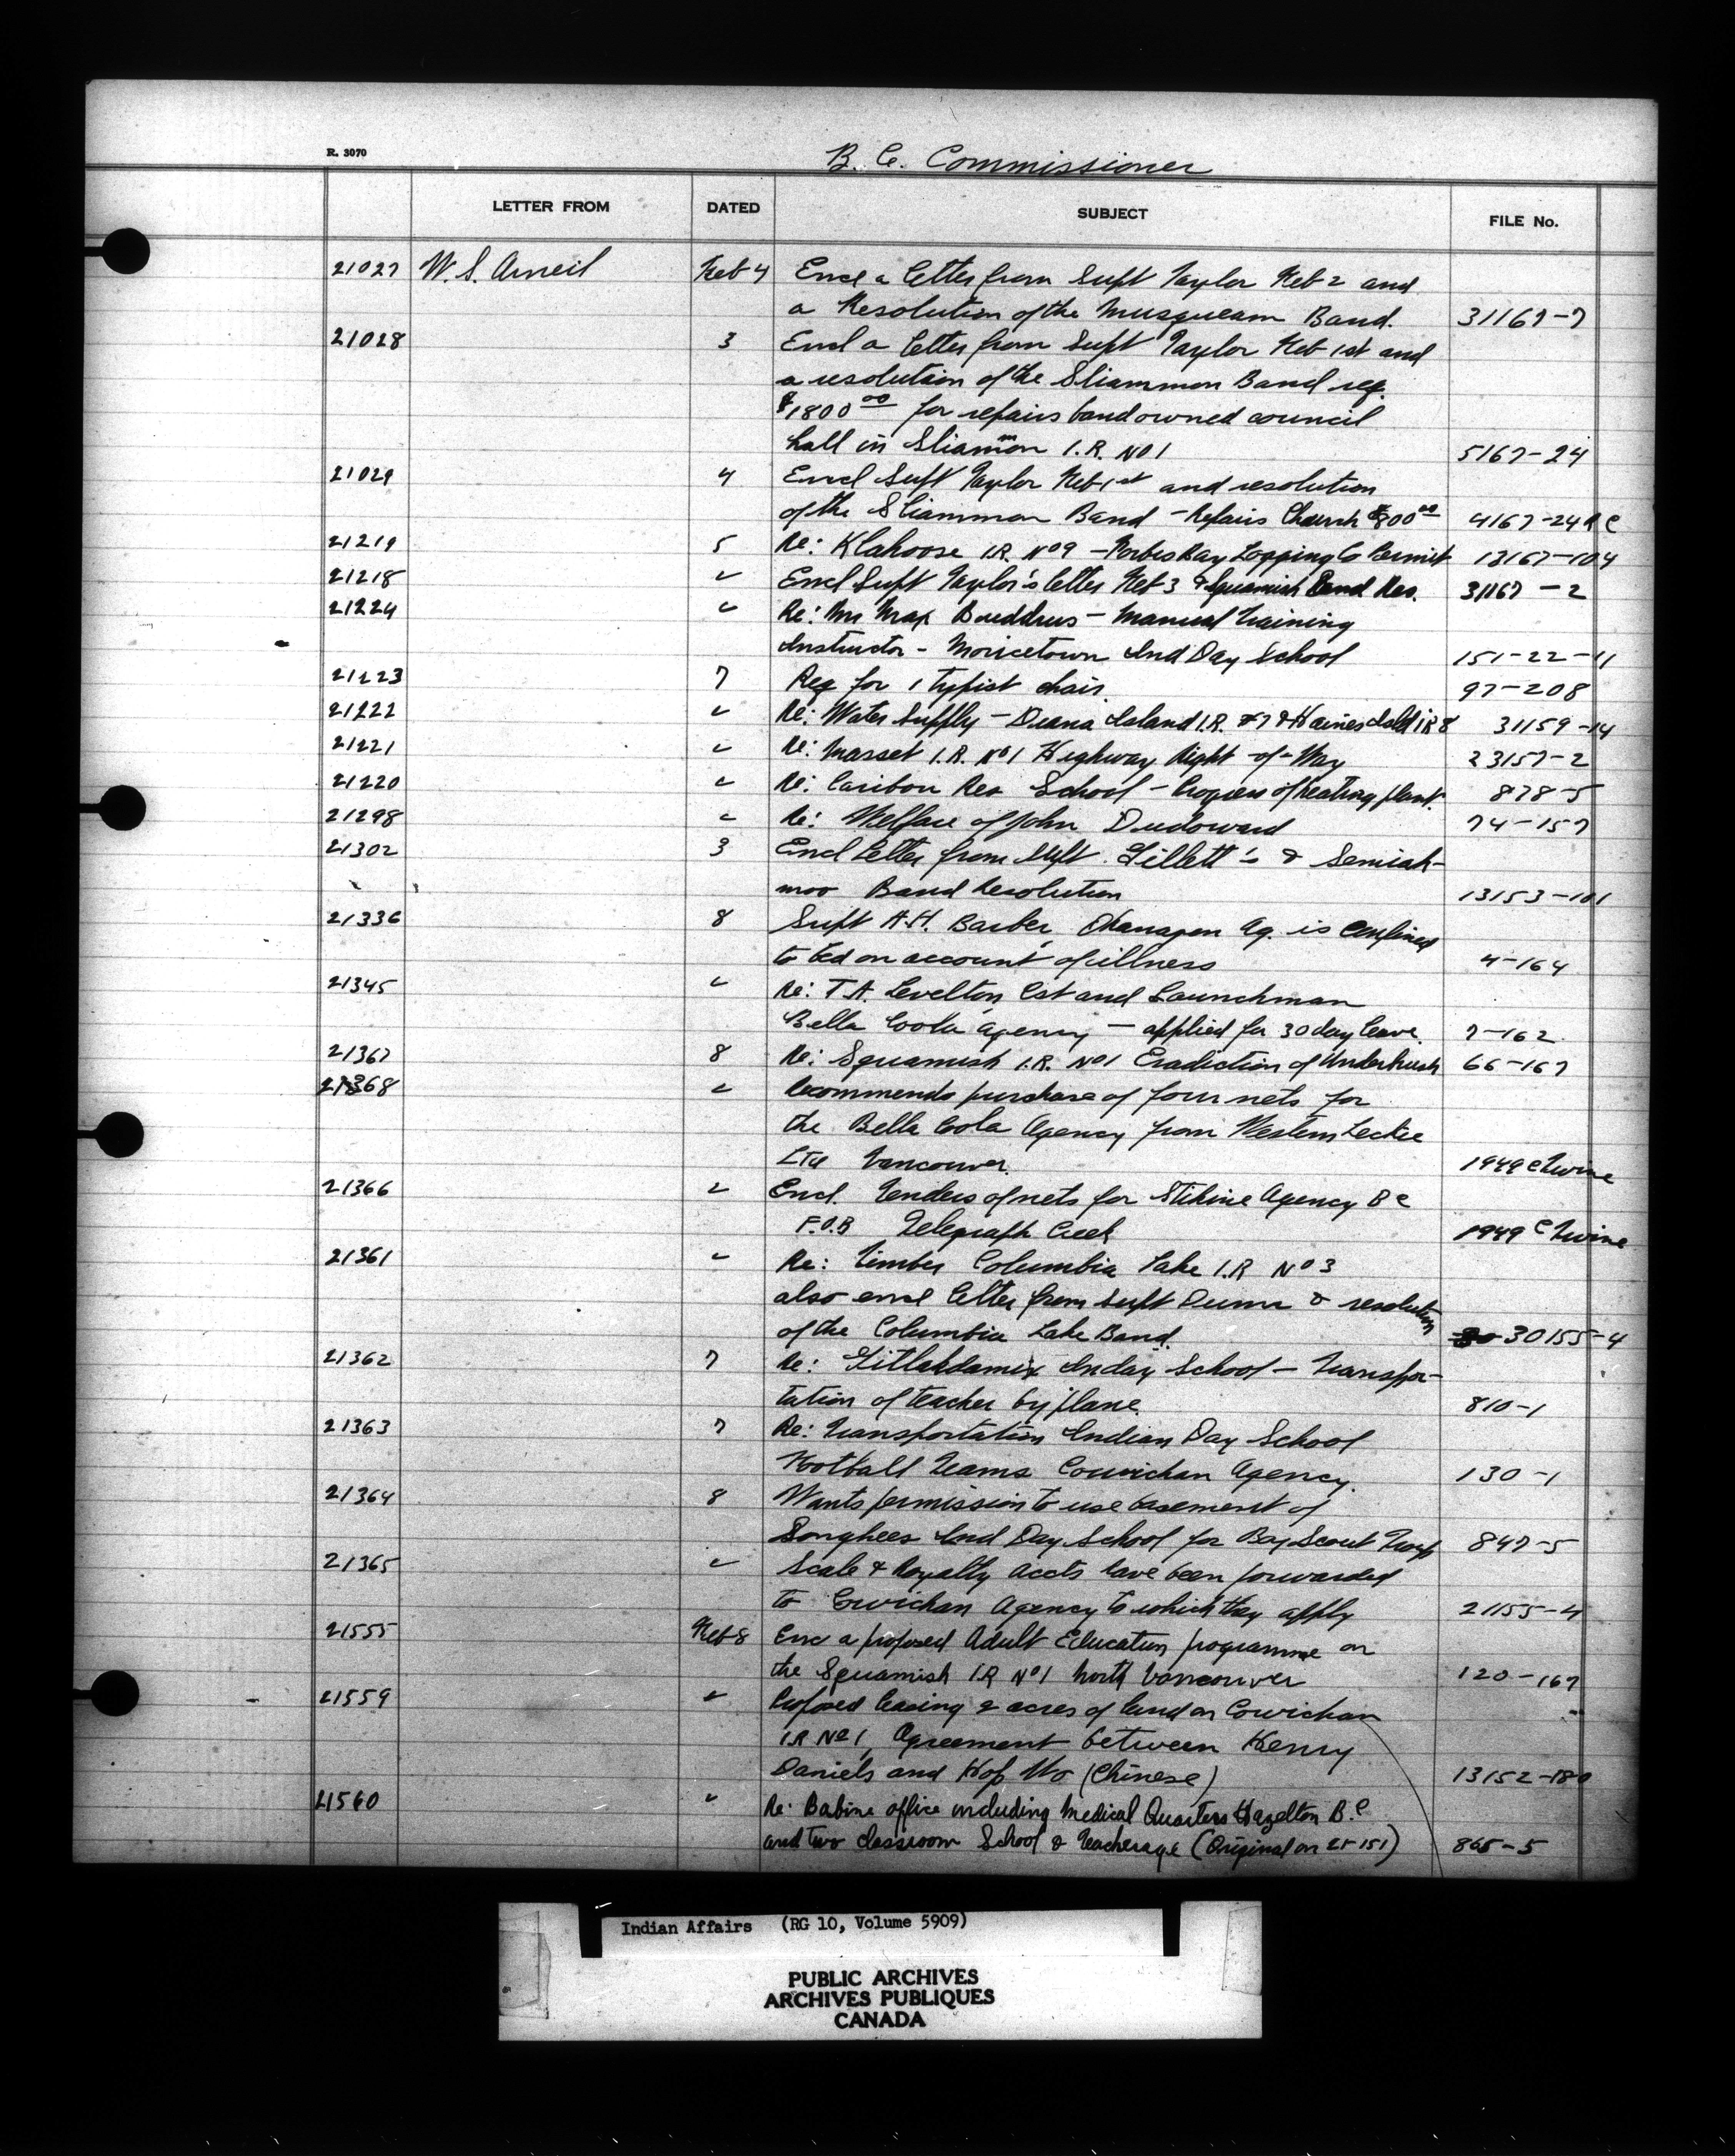 R. 3070
B. C. Commissioner
LETTER FROM DATED SUBJECT FILE No.
21027 W. S. Arneil Feb 4 Encl a letter from Supt Taylor Feb 2 and
a Resolution of the Musqueam Band. 31167-7
21028 3 Encl a letter from Supt Taylor Feb 1st and
a resolution of the Sliammon Band req.
$1800 00 for repairs band owned council
hall in Sliammon I.R. No 1 5167-24
21029 4 Encl Supt Taylor Feb 1st and resolution
of the Sliammon Band - Repairs Church $800 00 4167-24 R C
21219 5 Re: Klahoose I.R. No 9 - Forbes Bay Logging Co Permit 13167-104
21218 " Encl Supt Taylor's letter Feb 3 & Squamish Band Res. 31167-2
21224 " Re: Mr Max - Manual Training
Instructor - Moricetown Ind Day School 151-22-11
21223 7 Req for 1 typist chair 97-208
21222 " Re: Water Supply - Diana Island I.R. #7 & Haines Isld IR 8 31159-14
21221 " Re: Masset I.R. No 1 Highway Right-of-Way 23157-2
21220 " Re: Caribou Res School - Progress of heating plant. 878-5
21298 " Re: Welfare of John Dudoward 74-157
21302 3 Encl Letter from Supt. Gillett's & Semiah-
moo Band Resolution 13153-101
21336 8 Supt A.H. Barber, Okanagan Ag. is confined
to bed on account of illness 4-164
21345 " Re: T.A. Levelton, Cst and Launchman
Bella Coola Agency - applied for 30 day leave. 7-162
21367 8 Re: Squamish I.R. No 1 Eradiction of Underbrush 66-167
21368 " Recommends purchase of four nets for
the Bella Coola Agency from Western Leckie
Ltd Vancouver. 1949 C Twine
21366 " Encl. Tenders of nets for Stikine Agency B C
F.O.B Telegraph Creek 1949 C Twine
21361 " Re: Timber Columbia Lake I.R No 3
also encl letter from Supt Dunn & resolution
of the Columbia Lake Band. 30155-4
21362 7 Re: Gitlakdamix Inday School - Transpor-
tation of teacher by plane. 810-1
21363 7 Re: Transportation Indian Day School
Football Teams Cowichan Agency. 130-1
21364 8 Wants permission to use basement of
Songhees Ind Day School for Boy Scout Troop 847-5
21365 " Scale & Royalty Accts have been forwarded
to Cowichan Agency to which they apply 21155-4
21555 Feb 8 Enc a proposed Adult Education programme on
the Squamish I.R No 1 North Vancouver 120-167
21559 " Proposed leasing 2 acres of land on Cowichan
I.R No 1, Agreement between Henry
Daniels and Hop Wo (Chinese) 13152-180
21560 " Re: Babine office including Medical Quarters Hazelton B.C
and two classroom School & Teacherage (Original on 25-151) 865-5
Indian Affairs (RG 10, Volume 5909)
PUBLIC ARCHIVES
ARCHIVES PUBLIQUES
CANADA